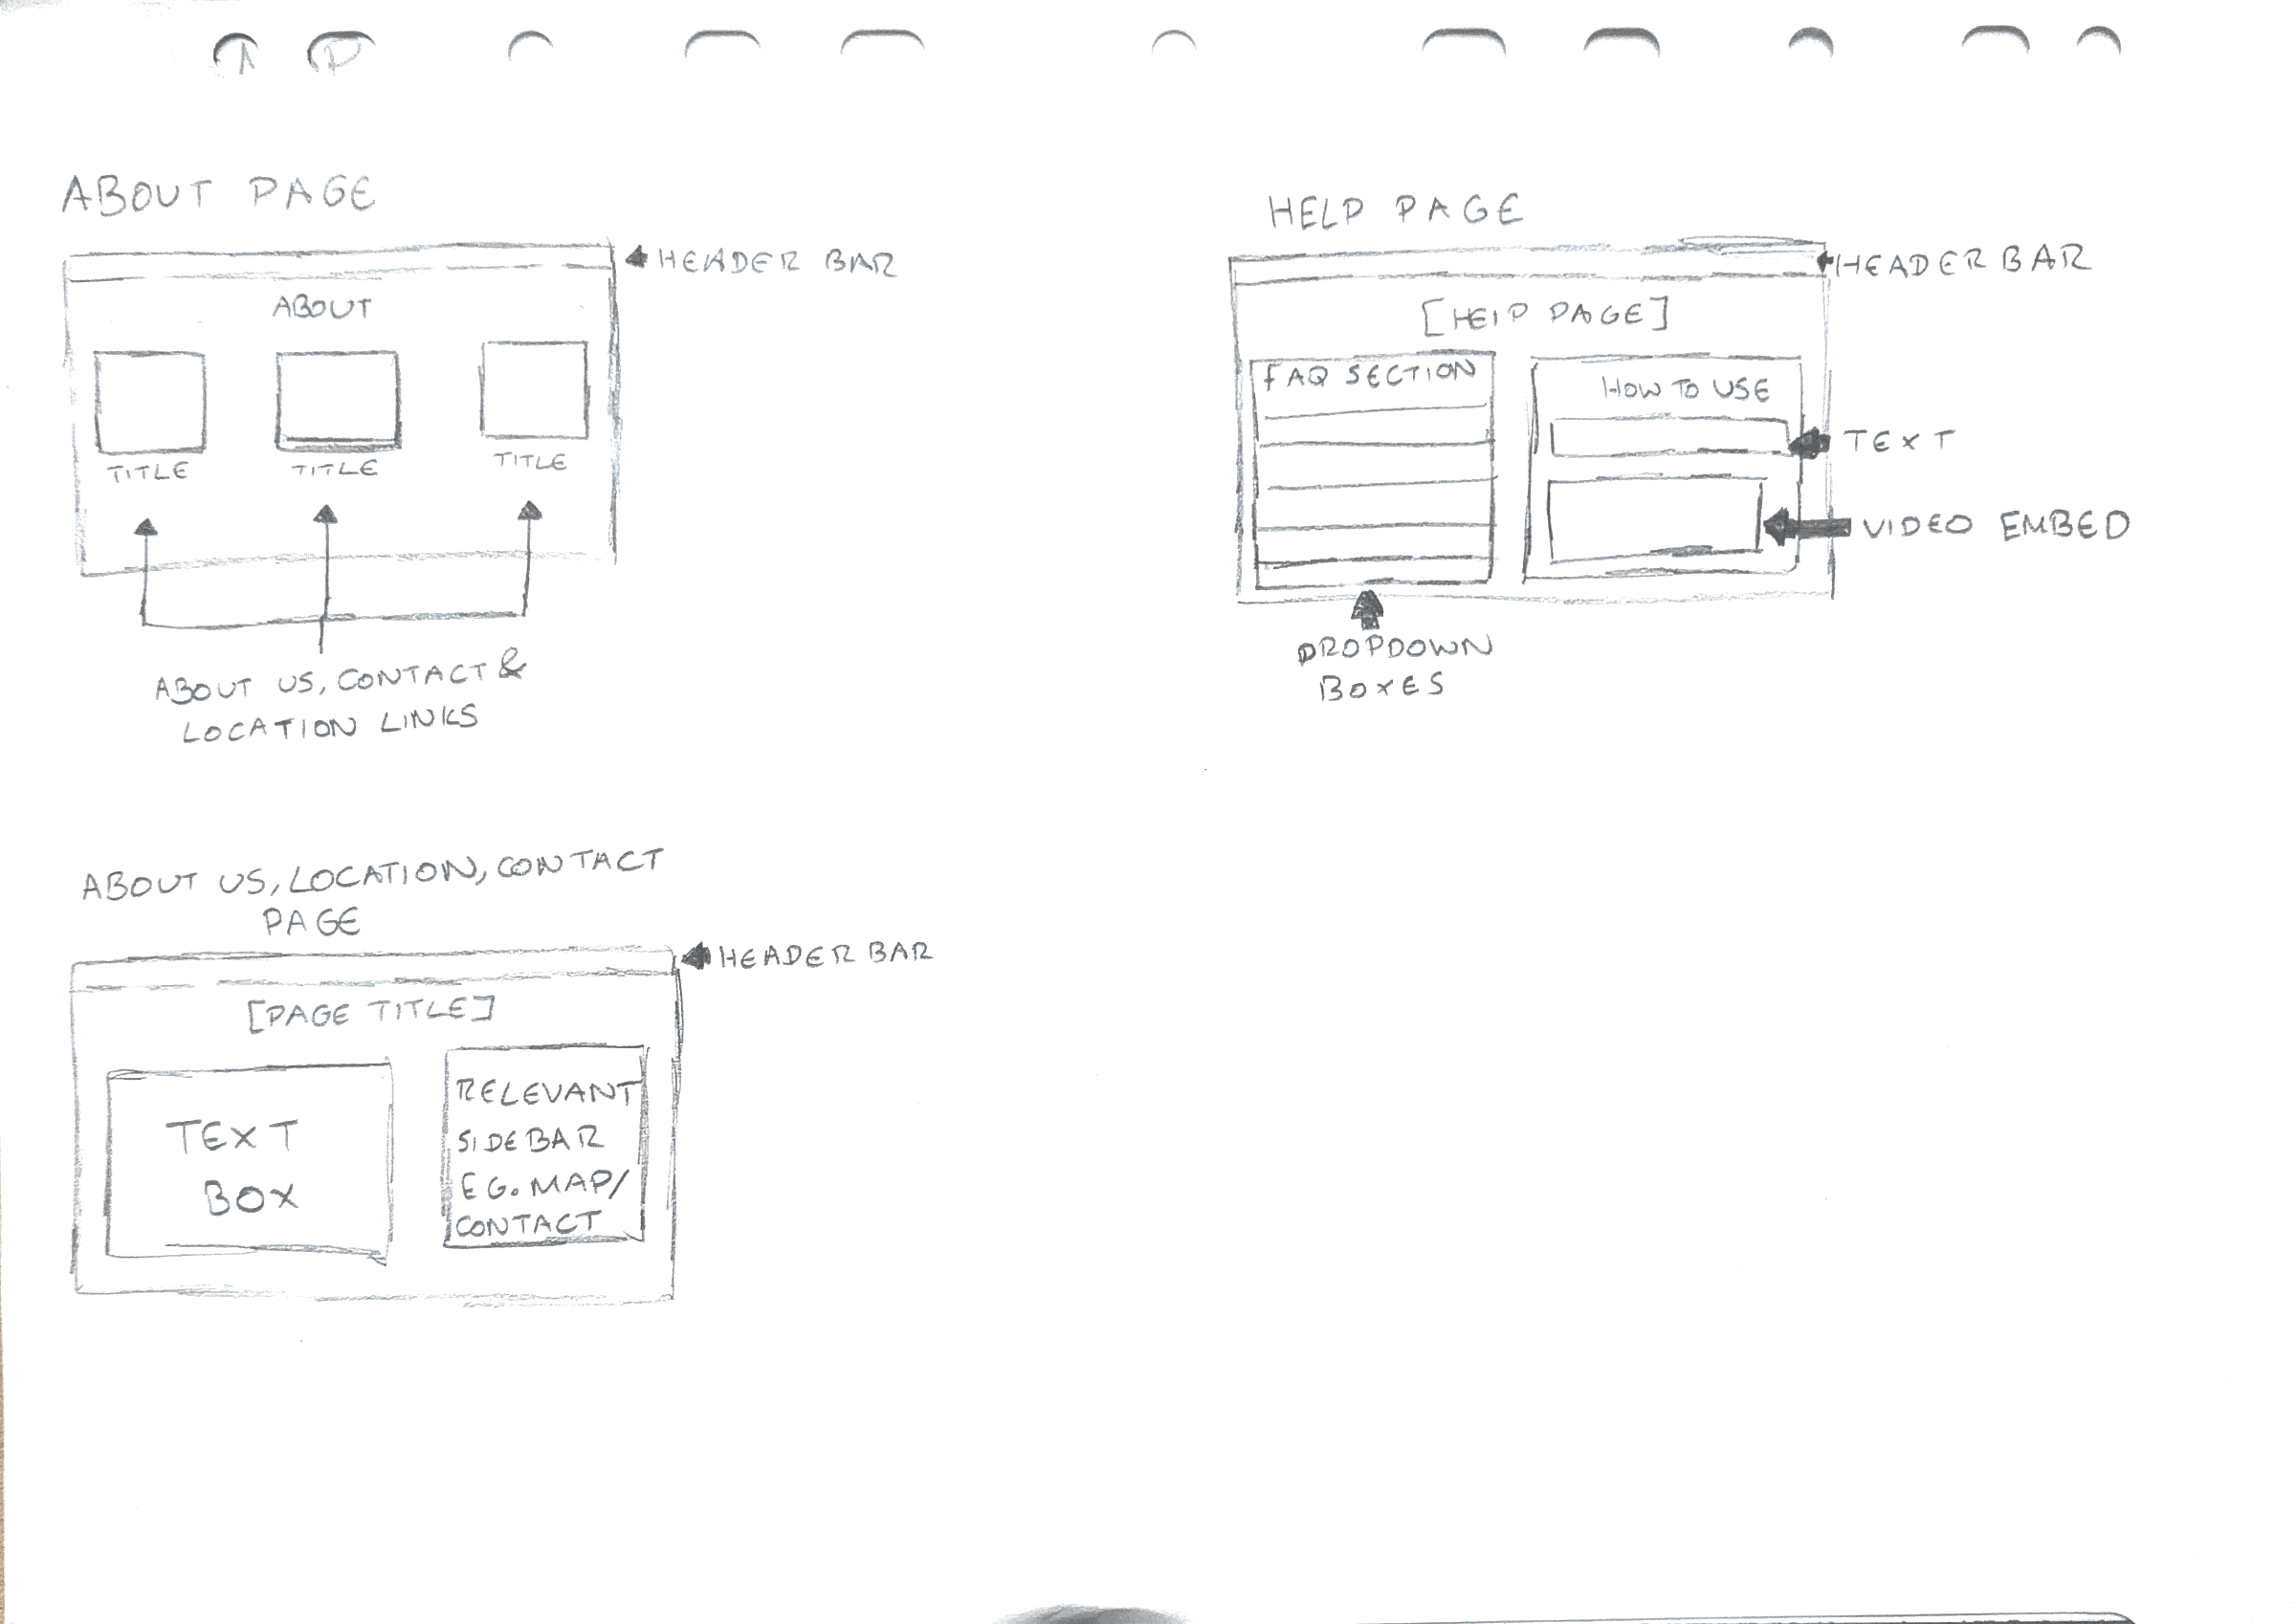 ABOUT PAGE
HEADER BAR
ABOUT
TITLE
TITLE
TITLE
ABOUT US, CONTACT &
LOCATION LINKS
HELP PAGE
HEADER BAR
[HELP PAGE]
FAQ SECTION
HOW TO USE
TEXT
VIDEO EMBED
DROPDOWN
BOXES
ABOUT US, LOCATION, CONTACT
PAGE
HEADER BAR
[PAGE TITLE]
TEXT
BOX
RELEVANT
SIDEBAR
EG. MAP/
CONTACT